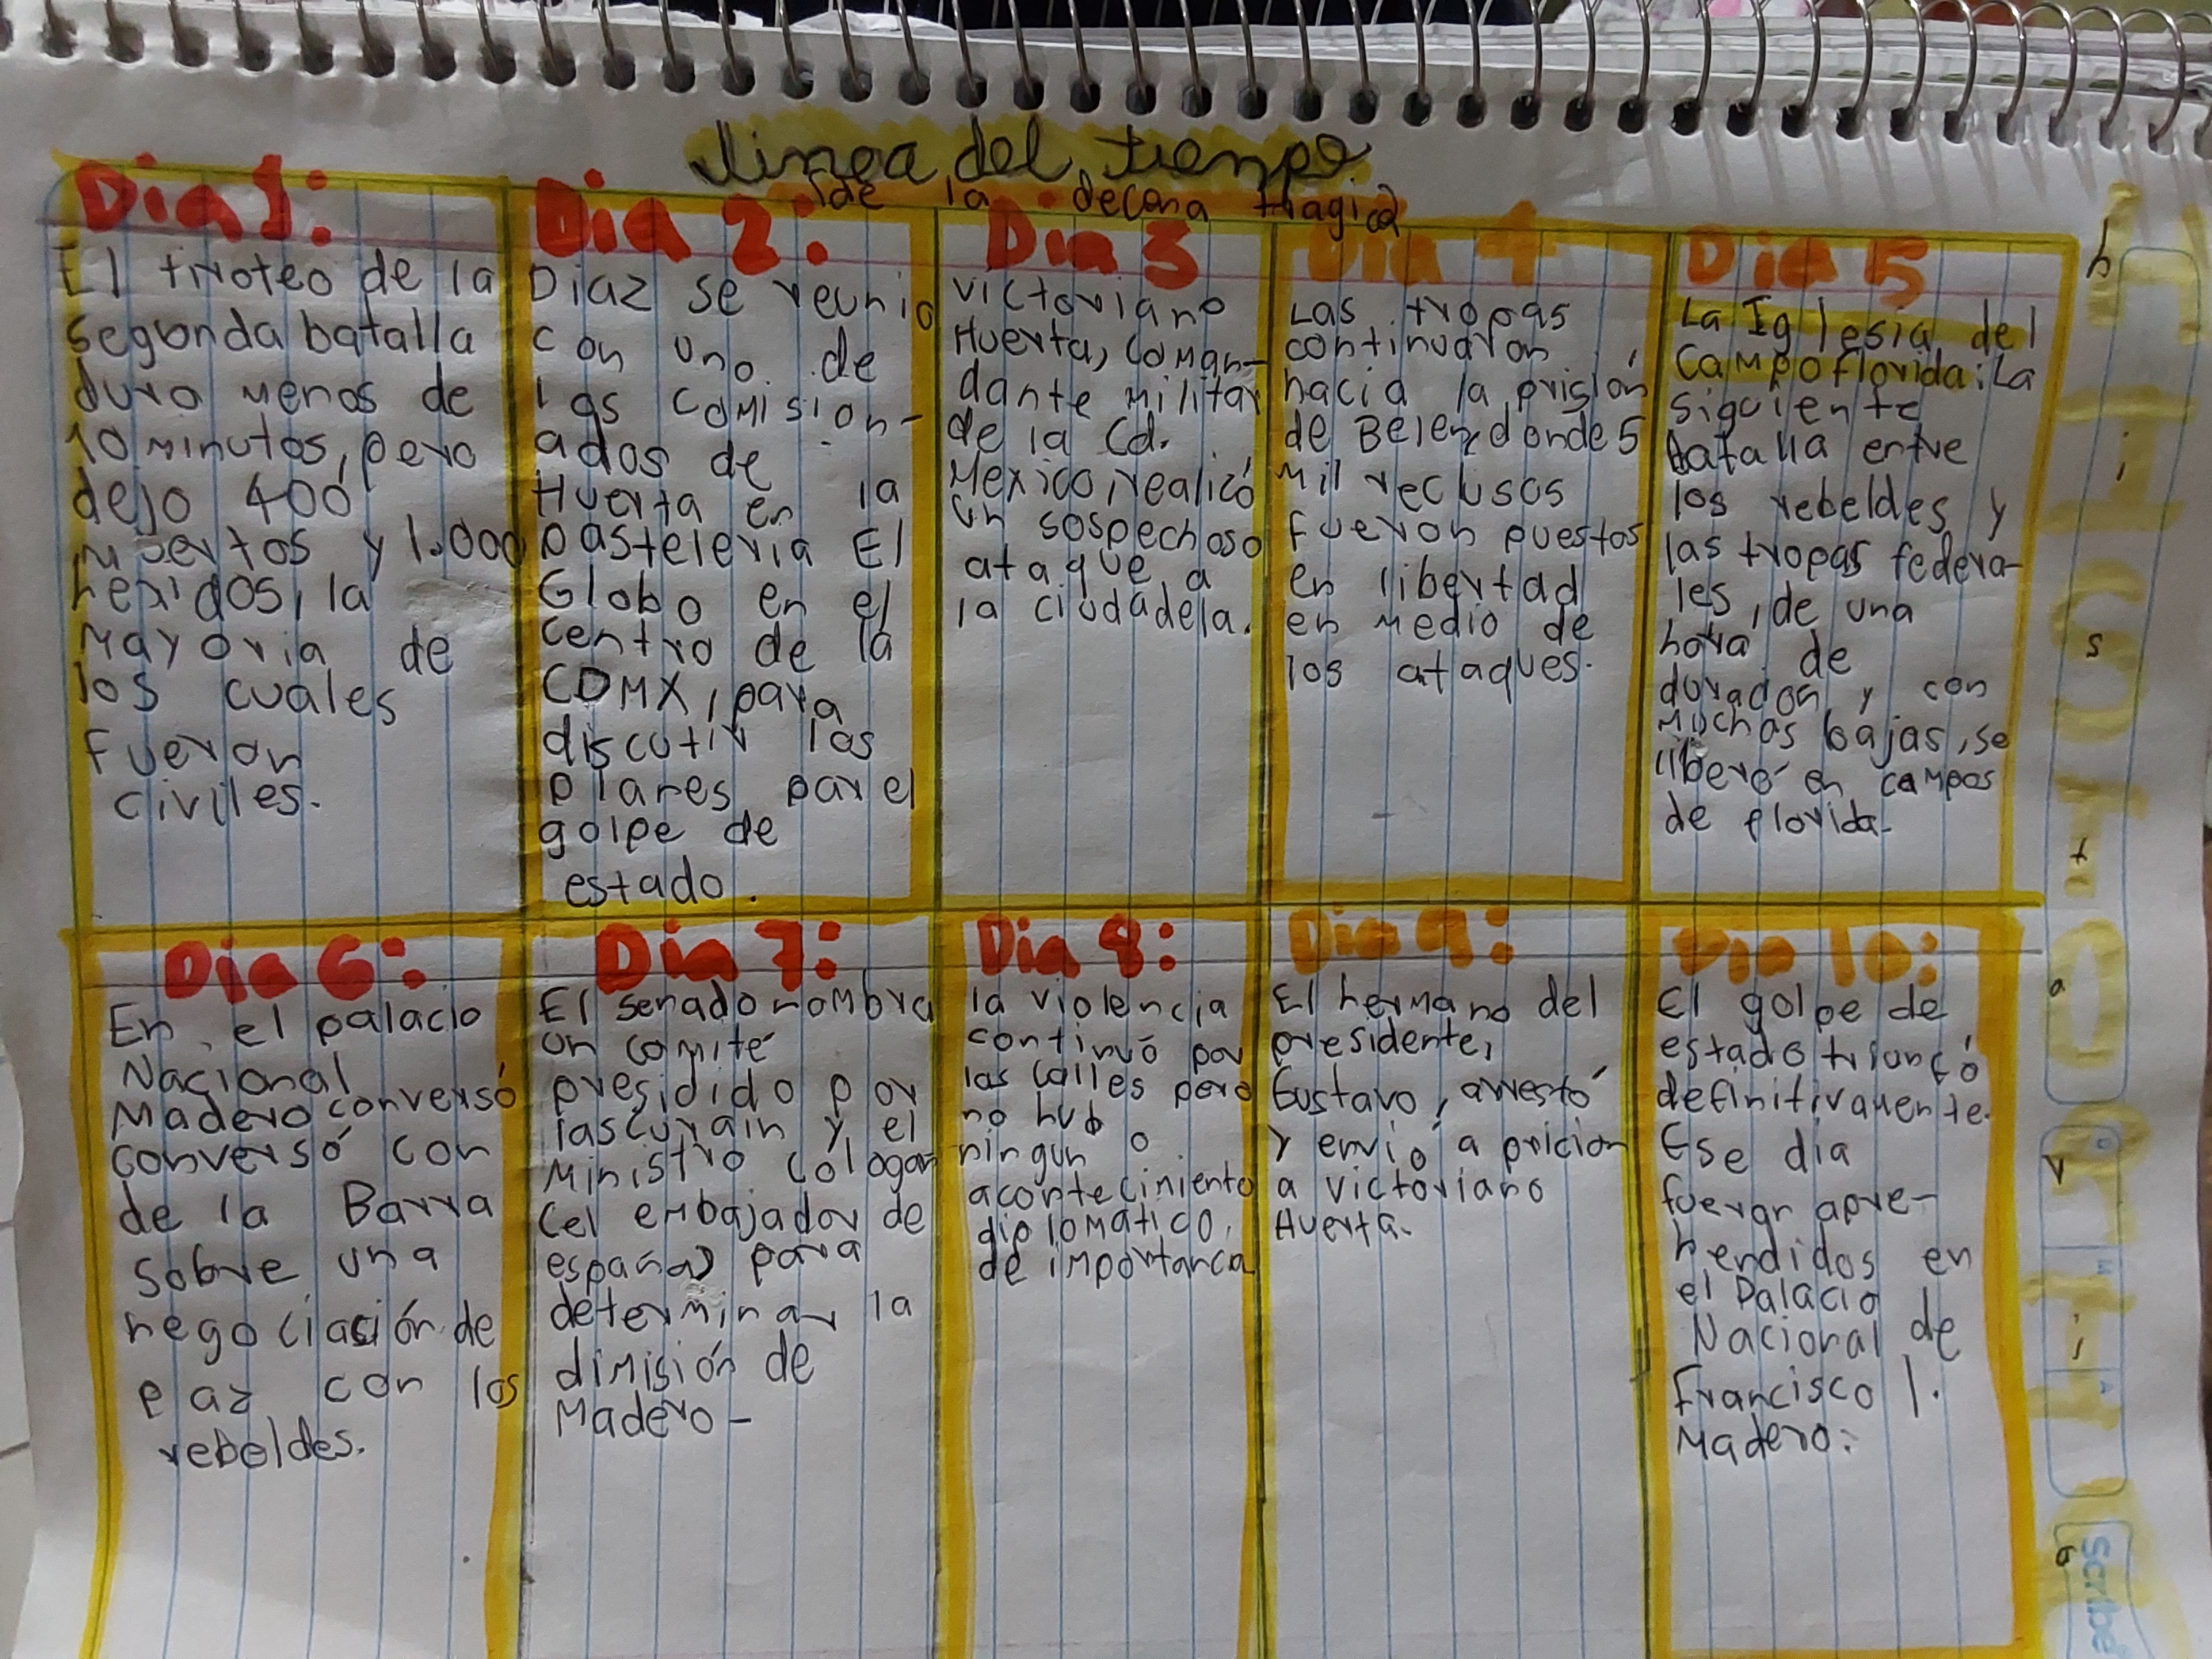 linea del tienpo
de la decena tragica
Dia 1:
El tiroteo de la
segonda batalla
duro menos de
10 minutos, pero
dejo 400
muertos y 1.000
heridos, la
mayoria de
los cuales
fueron
civiles.
Dia 2:
Diaz se reunio
con uno de
los comision-
ados de
Huerta en la
pasteleria El
Globo en el
centro de la
CDMX, para
discutir los
planes par el
golpe de
estado.
Dia 3
victoriano
Huerta, coman-
dante militar
de la Cd.
Mexico, realicó
un sospechoso
ataque a
la ciudadela.
Dia 4
Las tropas
continuaron
hacia la prisión
de Belen donde 5
mil reclusos
fueron puestos
en libertad
en medio de
los ataques.
Dia 5
La Iglesia del
Campo florida: La
siguiente
batalla entre
los rebeldes y
las tropas federa-
les, de una
hora de
duradon y con
muchos bajas, se
liberó en campos
de florida.
Dia 6:
En el palacio
Nacional
Madero conversó
conversó con
de la Barra
sobre una
negociasión de
paz con los
rebeldes.
Dia 7:
El senado nombra
un comité
presidido por
lascurain y el
ministro cologan
(el embajador de
españa) para
determinar la
dimisión de
Madero-
Dia 8:
la violencia
continuó por
las calles pero
no hub
ningun o
acontecimiento
diplomático,
de importanca
Dia 9:
El hermano del
presidente,
Gustavo, arrestó
y envió a pricion
a victoriano
Huerta.
Dia 10:
El golpe de
estado triunfó
definitivamente.
Ese dia
fueron apre-
hendidos en
el Palacio
Nacional de
Francisco I.
Madero.
Historia
Scribe